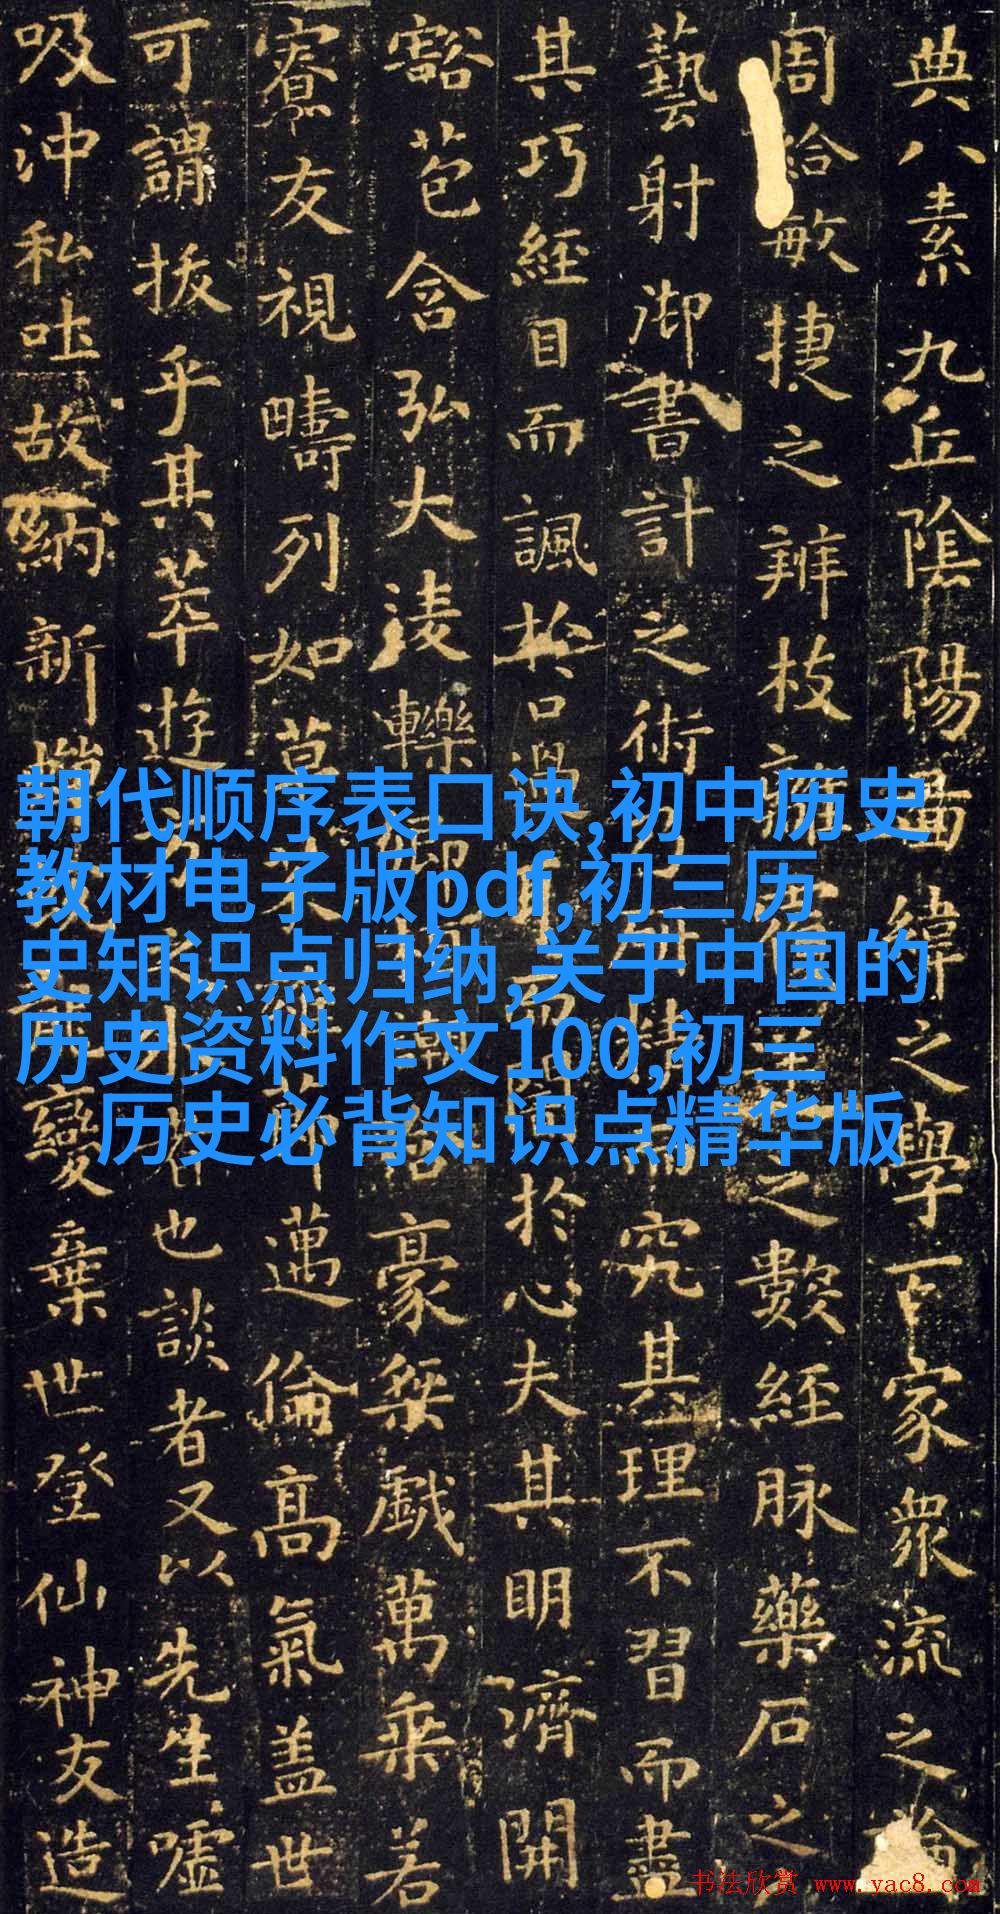 朝代顺序表口诀,初中历史
教材电子版pdf,初三历
史知识点归纳,关于中国的
历史资料作文100,初三
历史必背知识点精华版
典八素九丘陰陽圖緯之學百家眾流之論
周給敏捷之辨枝之數經脉藥石之
藝射御書計之術究其理不習而盡
其巧經目而諷於口過於心夫其明濟開
豁苞含弘大淩轢豪桀戲萬乘若
寮友視疇列如草邁倫高氣蓋世
可謂拔乎其萃遊也談者又以先生噓
吸沖和吐故納新變棄世登仙神友造
书法欣赏 www.yac8.com